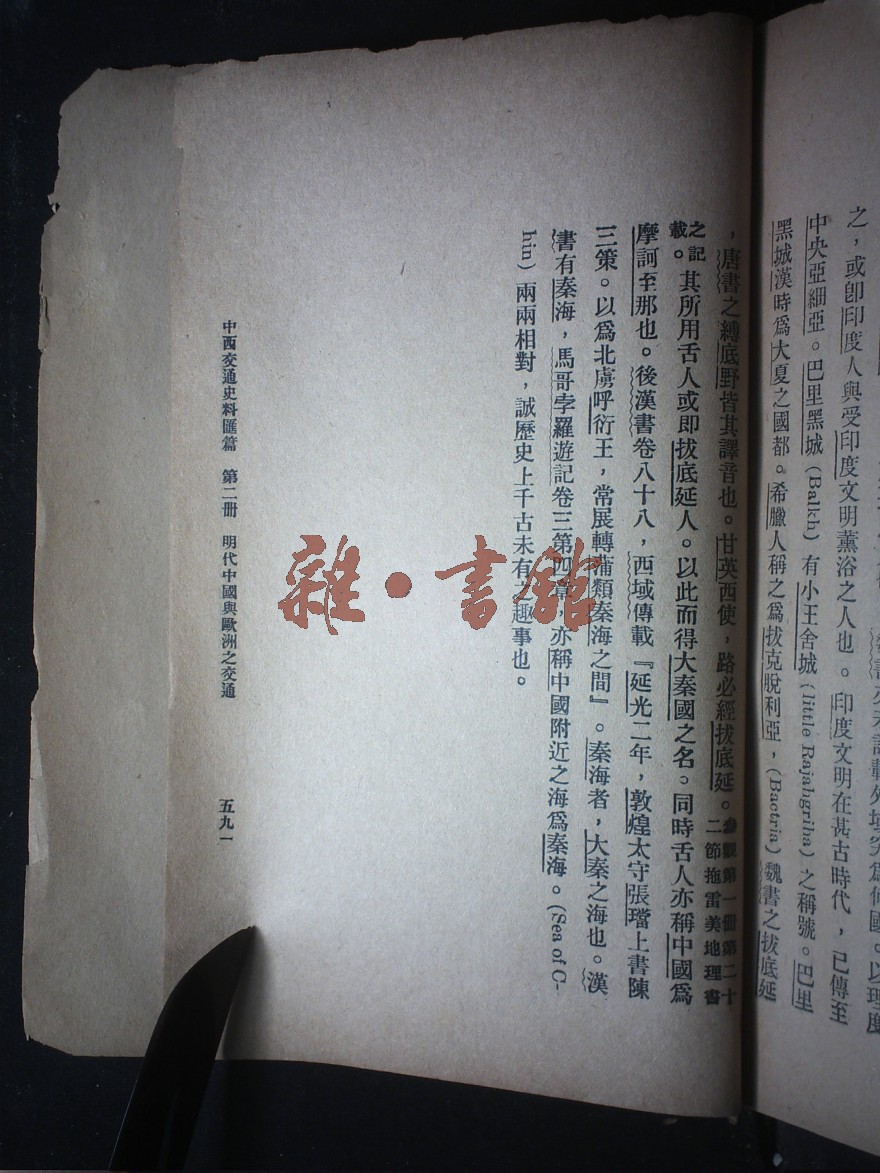 之，或卽印度人與受印度文明薰浴之人也。印度文明在甚古時代，已傳至
中央亞細亞。巴里黑城(Balkh)有小王舍城(little Rajahgriha)之稱號。巴里
黑城漢時爲大夏之國都。希臘人稱之爲拔克脫利亞，(Bactria)魏書之拔底延
，唐書之縛底野皆其譯音也。甘英西使，路必經拔底延。參觀第一冊第二十
二節拖雷美地理書
之記
載。其所用舌人或即拔底延人。以此而得大秦國之名。同時舌人亦稱中國爲
摩訶至那也。後漢書卷八十八，西域傳載『延光二年，敦煌太守張璫上書陳
三策。以爲北虜呼衍王，常展轉蒲類秦海之間』。秦海者，大秦之海也。漢
書有秦海，馬哥孛羅遊記卷三第四章，亦稱中國附近之海爲秦海。(Sea of C-
hin)兩兩相對，誠歷史上千古未有之趣事也。
中西交通史料匯篇　第二册　明代中國與歐洲之交通
五九一
雜·書館